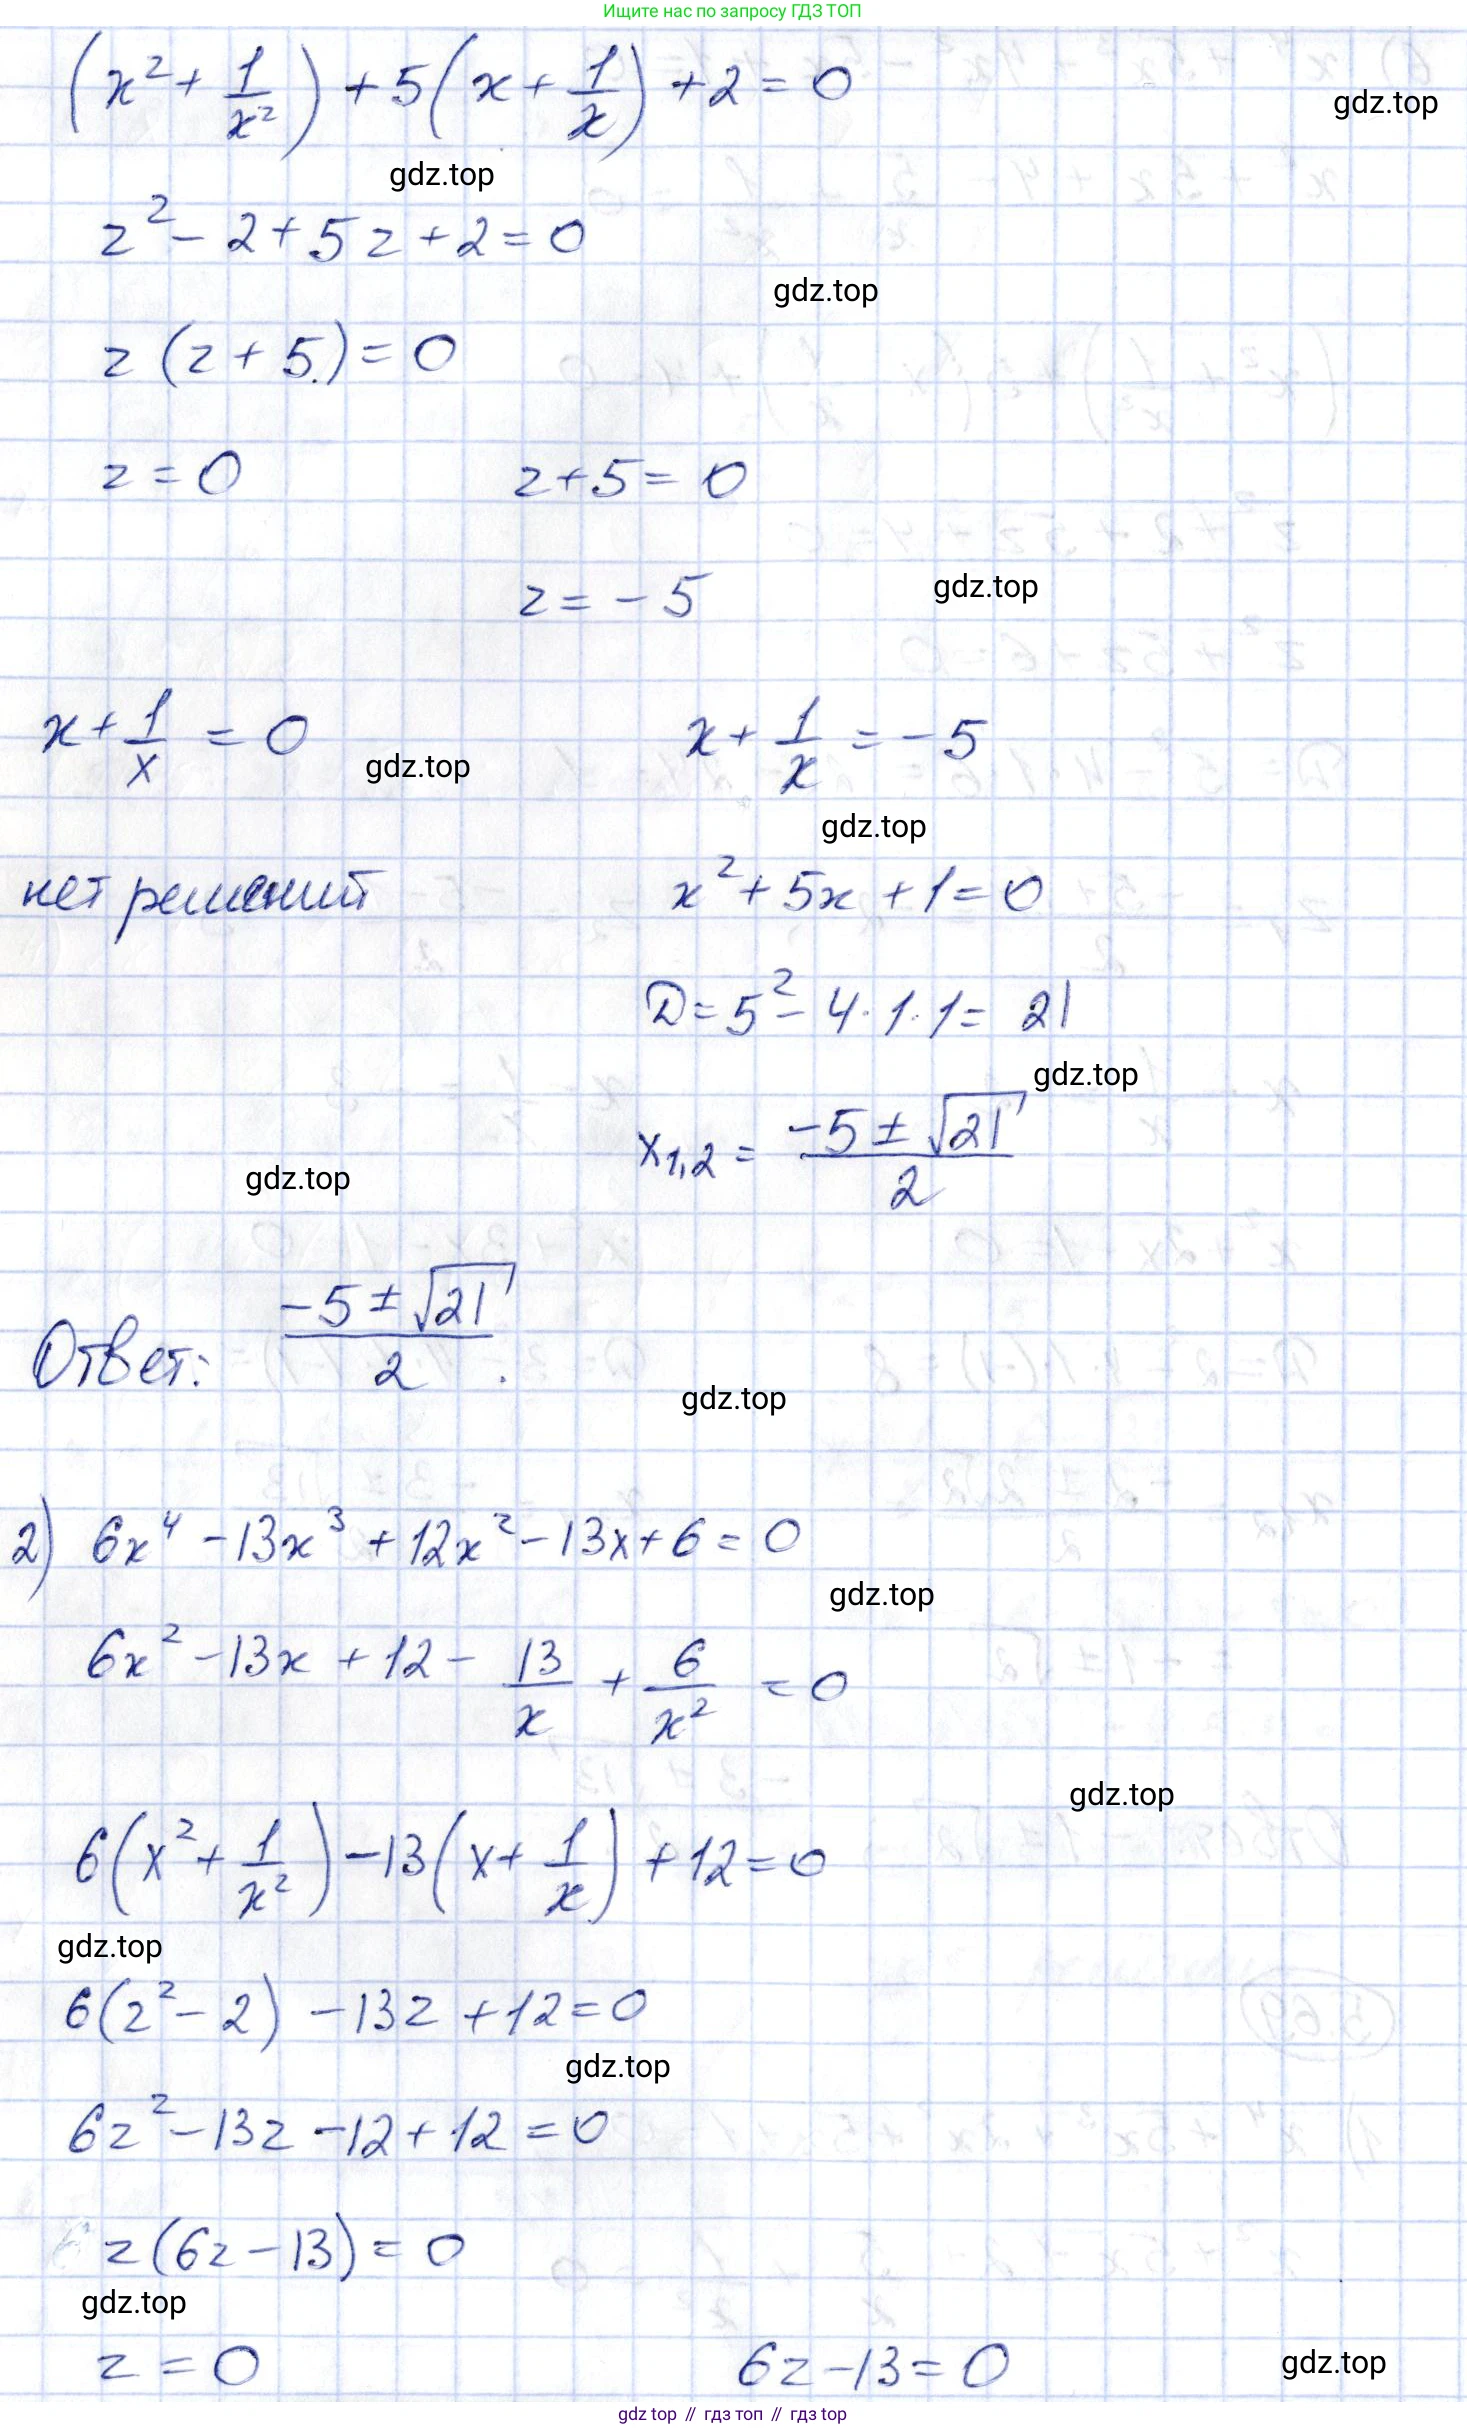 Ищите нас по запросу ГДЗ ТОП
(x² + 1/x²) + 5(x + 1/x) + 2 = 0
gdz.top
gdz.top
z² - 2 + 5z + 2 = 0
gdz.top
z(z + 5) = 0
z = 0 z + 5 = 0
z = -5
gdz.top
x + 1/x = 0 x + 1/x = -5
gdz.top
gdz.top
нет решений x² + 5x + 1 = 0
D = 5² - 4·1·1 = 21
gdz.top
x₁,₂ = (-5 ± √21)/2
gdz.top
Ответ: (-5 ± √21)/2.
gdz.top
2) 6x⁴ - 13x³ + 12x² - 13x + 6 = 0
gdz.top
6x² - 13x + 12 - 13/x + 6/x² = 0
gdz.top
6(x² + 1/x²) - 13(x + 1/x) + 12 = 0
gdz.top
6(z² - 2) - 13z + 12 = 0
gdz.top
6z² - 13z - 12 + 12 = 0
z(6z - 13) = 0
gdz.top
z = 0 6z - 13 = 0
gdz.top
gdz top // гдз топ // гдз top